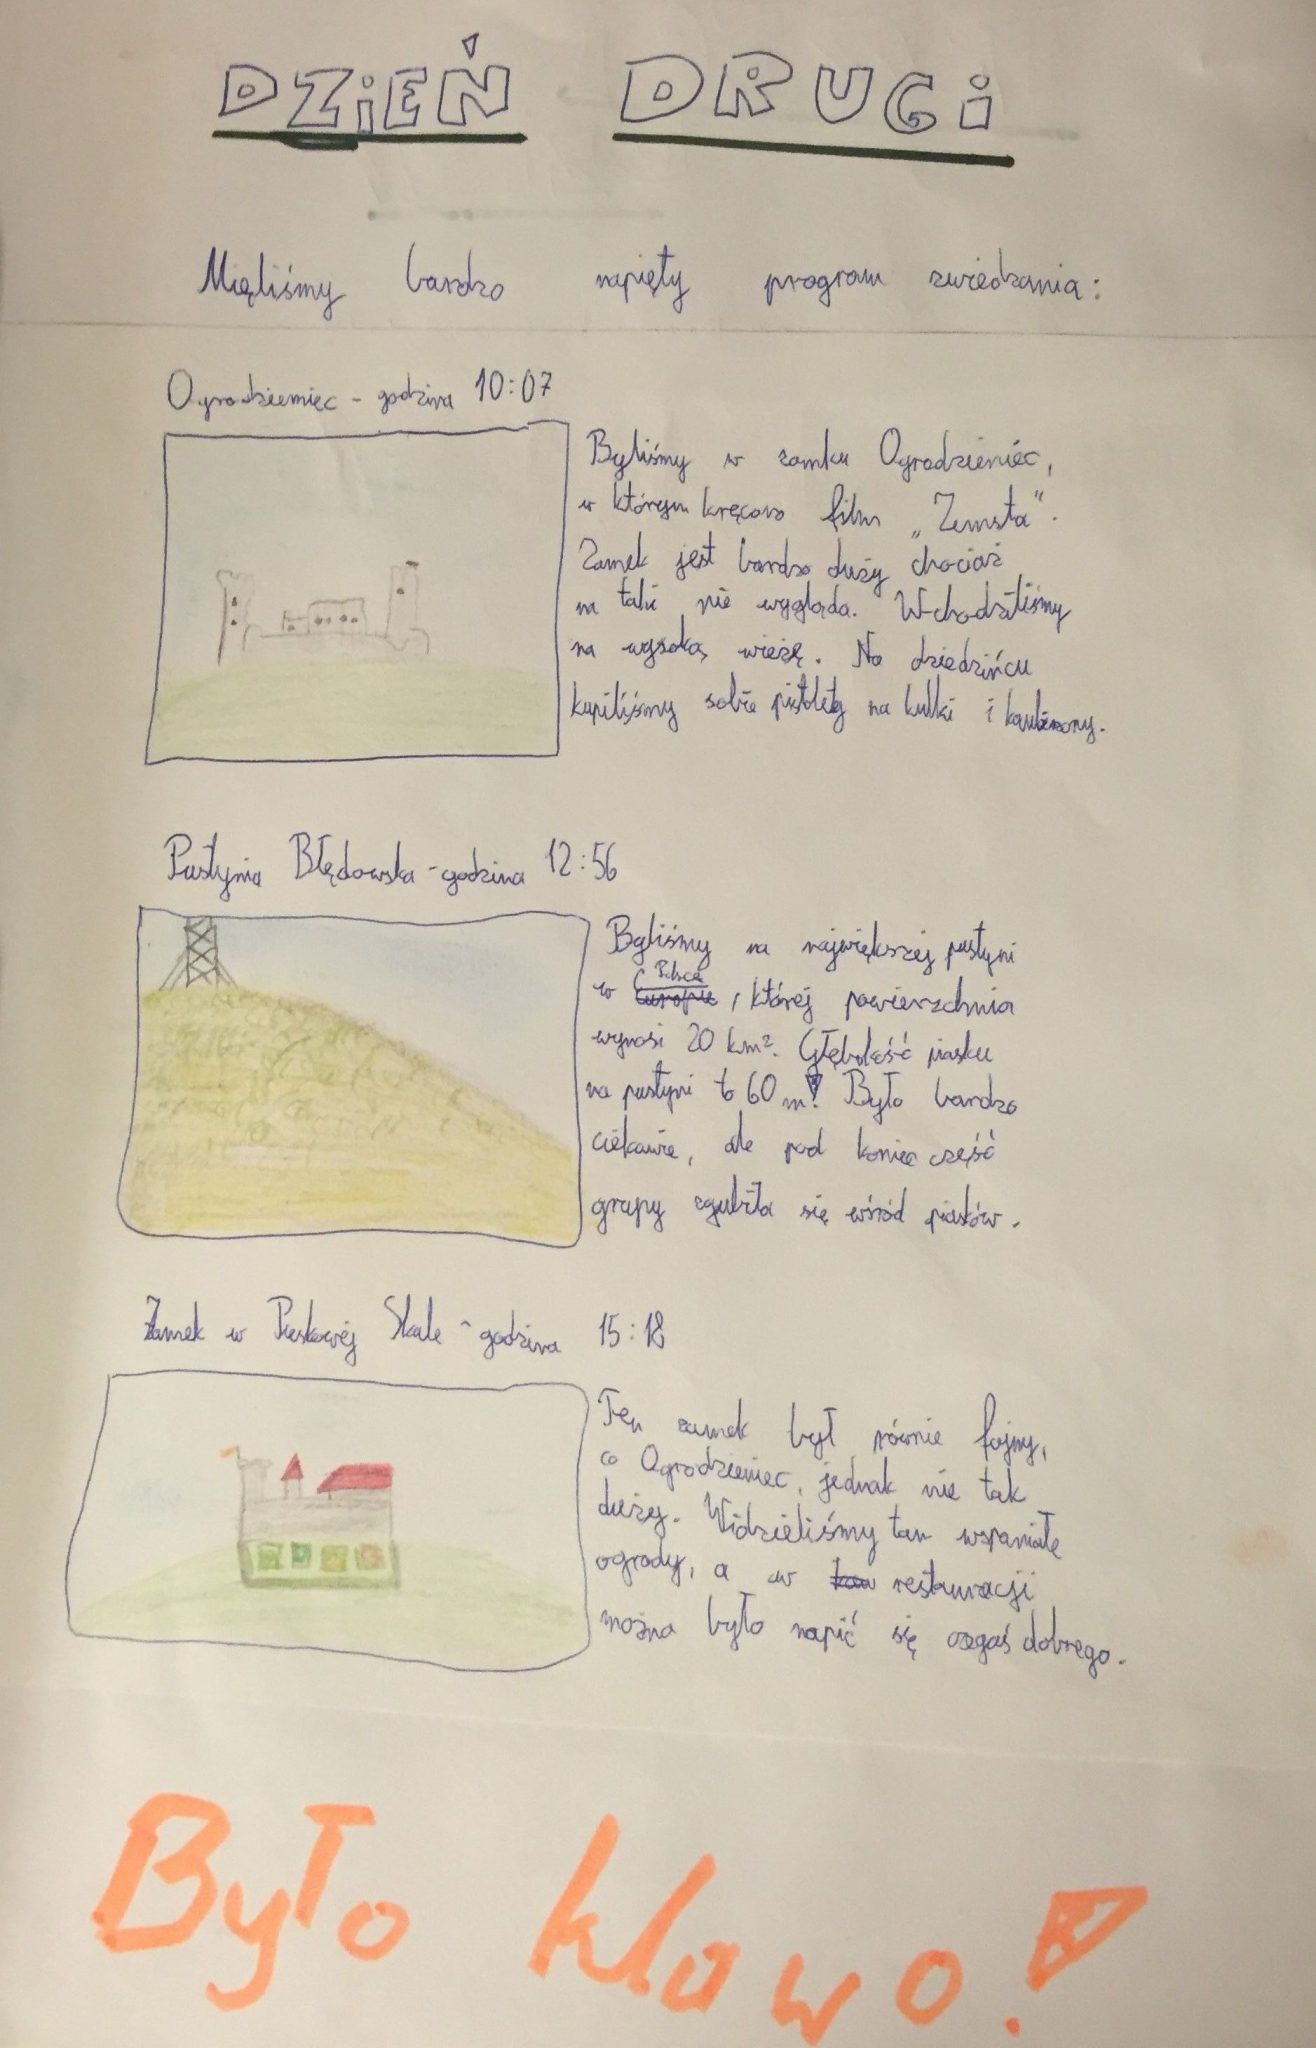 DZIEŃ DRUGI
Mięliśmy bardzo napięty program zwiedzania:
Ogrodzieniec - godzina 10:07
Byliśmy w zamku Ogrodzieniec,
w którym kręcono film „Zemsta".
Zamek jest bardzo duży chociaż
na taki nie wygląda. Wchodziliśmy
na wysoką wieżę. Na dziedzińcu
kupiliśmy sobie pistolety na kulki i
Pustynia Błędowska - godzina 12:56
Byliśmy na największej pustyni
w Polsce, której powierzchnia
wynosi 20 km². Głębokość piasku
na pustyni to 60 m! Było bardzo
ciekawie, ale pod koniec część
grupy zgubiła się wśród piasków.
Zamek w Pieskowej Skale - godzina 15:18
Ten zamek był równie fajny,
co Ogrodzieniec, jednak nie tak
duży. Widzieliśmy tam wspaniałe
ogrody, a w restauracji
można było napić się czegoś dobrego.
Było klawo!